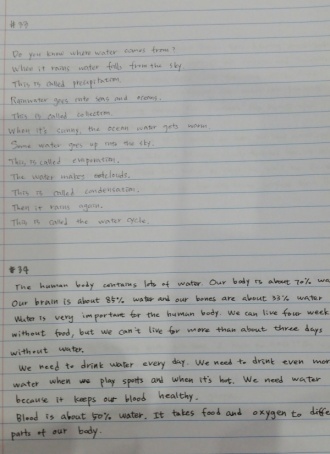 # 37
Do you know where water comes from?
When it rains water falls from the sky
This is called precipitation.
Rainwater goes into seas and oceans.
This is called collection.
When it's sunny, the ocean water gets warm
Some water goes up into the sky.
This is called evaporation.
The water makes clouds.
This is called condensation.
Then it rains again.
This is called the water cycle.
# 39
The human body contains lots of water. Our body is about 70% wa
Our brain is about 85% water and our bones are about 33% water
Water is very important for the human body. We can live four week
without food, but we can't live for more than about three days
without water.
We need to drink water every day. We need to drink even mor
water when we play sports and when it's hot. We need water
because it keeps our blood healthy.
Blood is about 50% water. It takes food and oxygen to diffe
parts of our body.